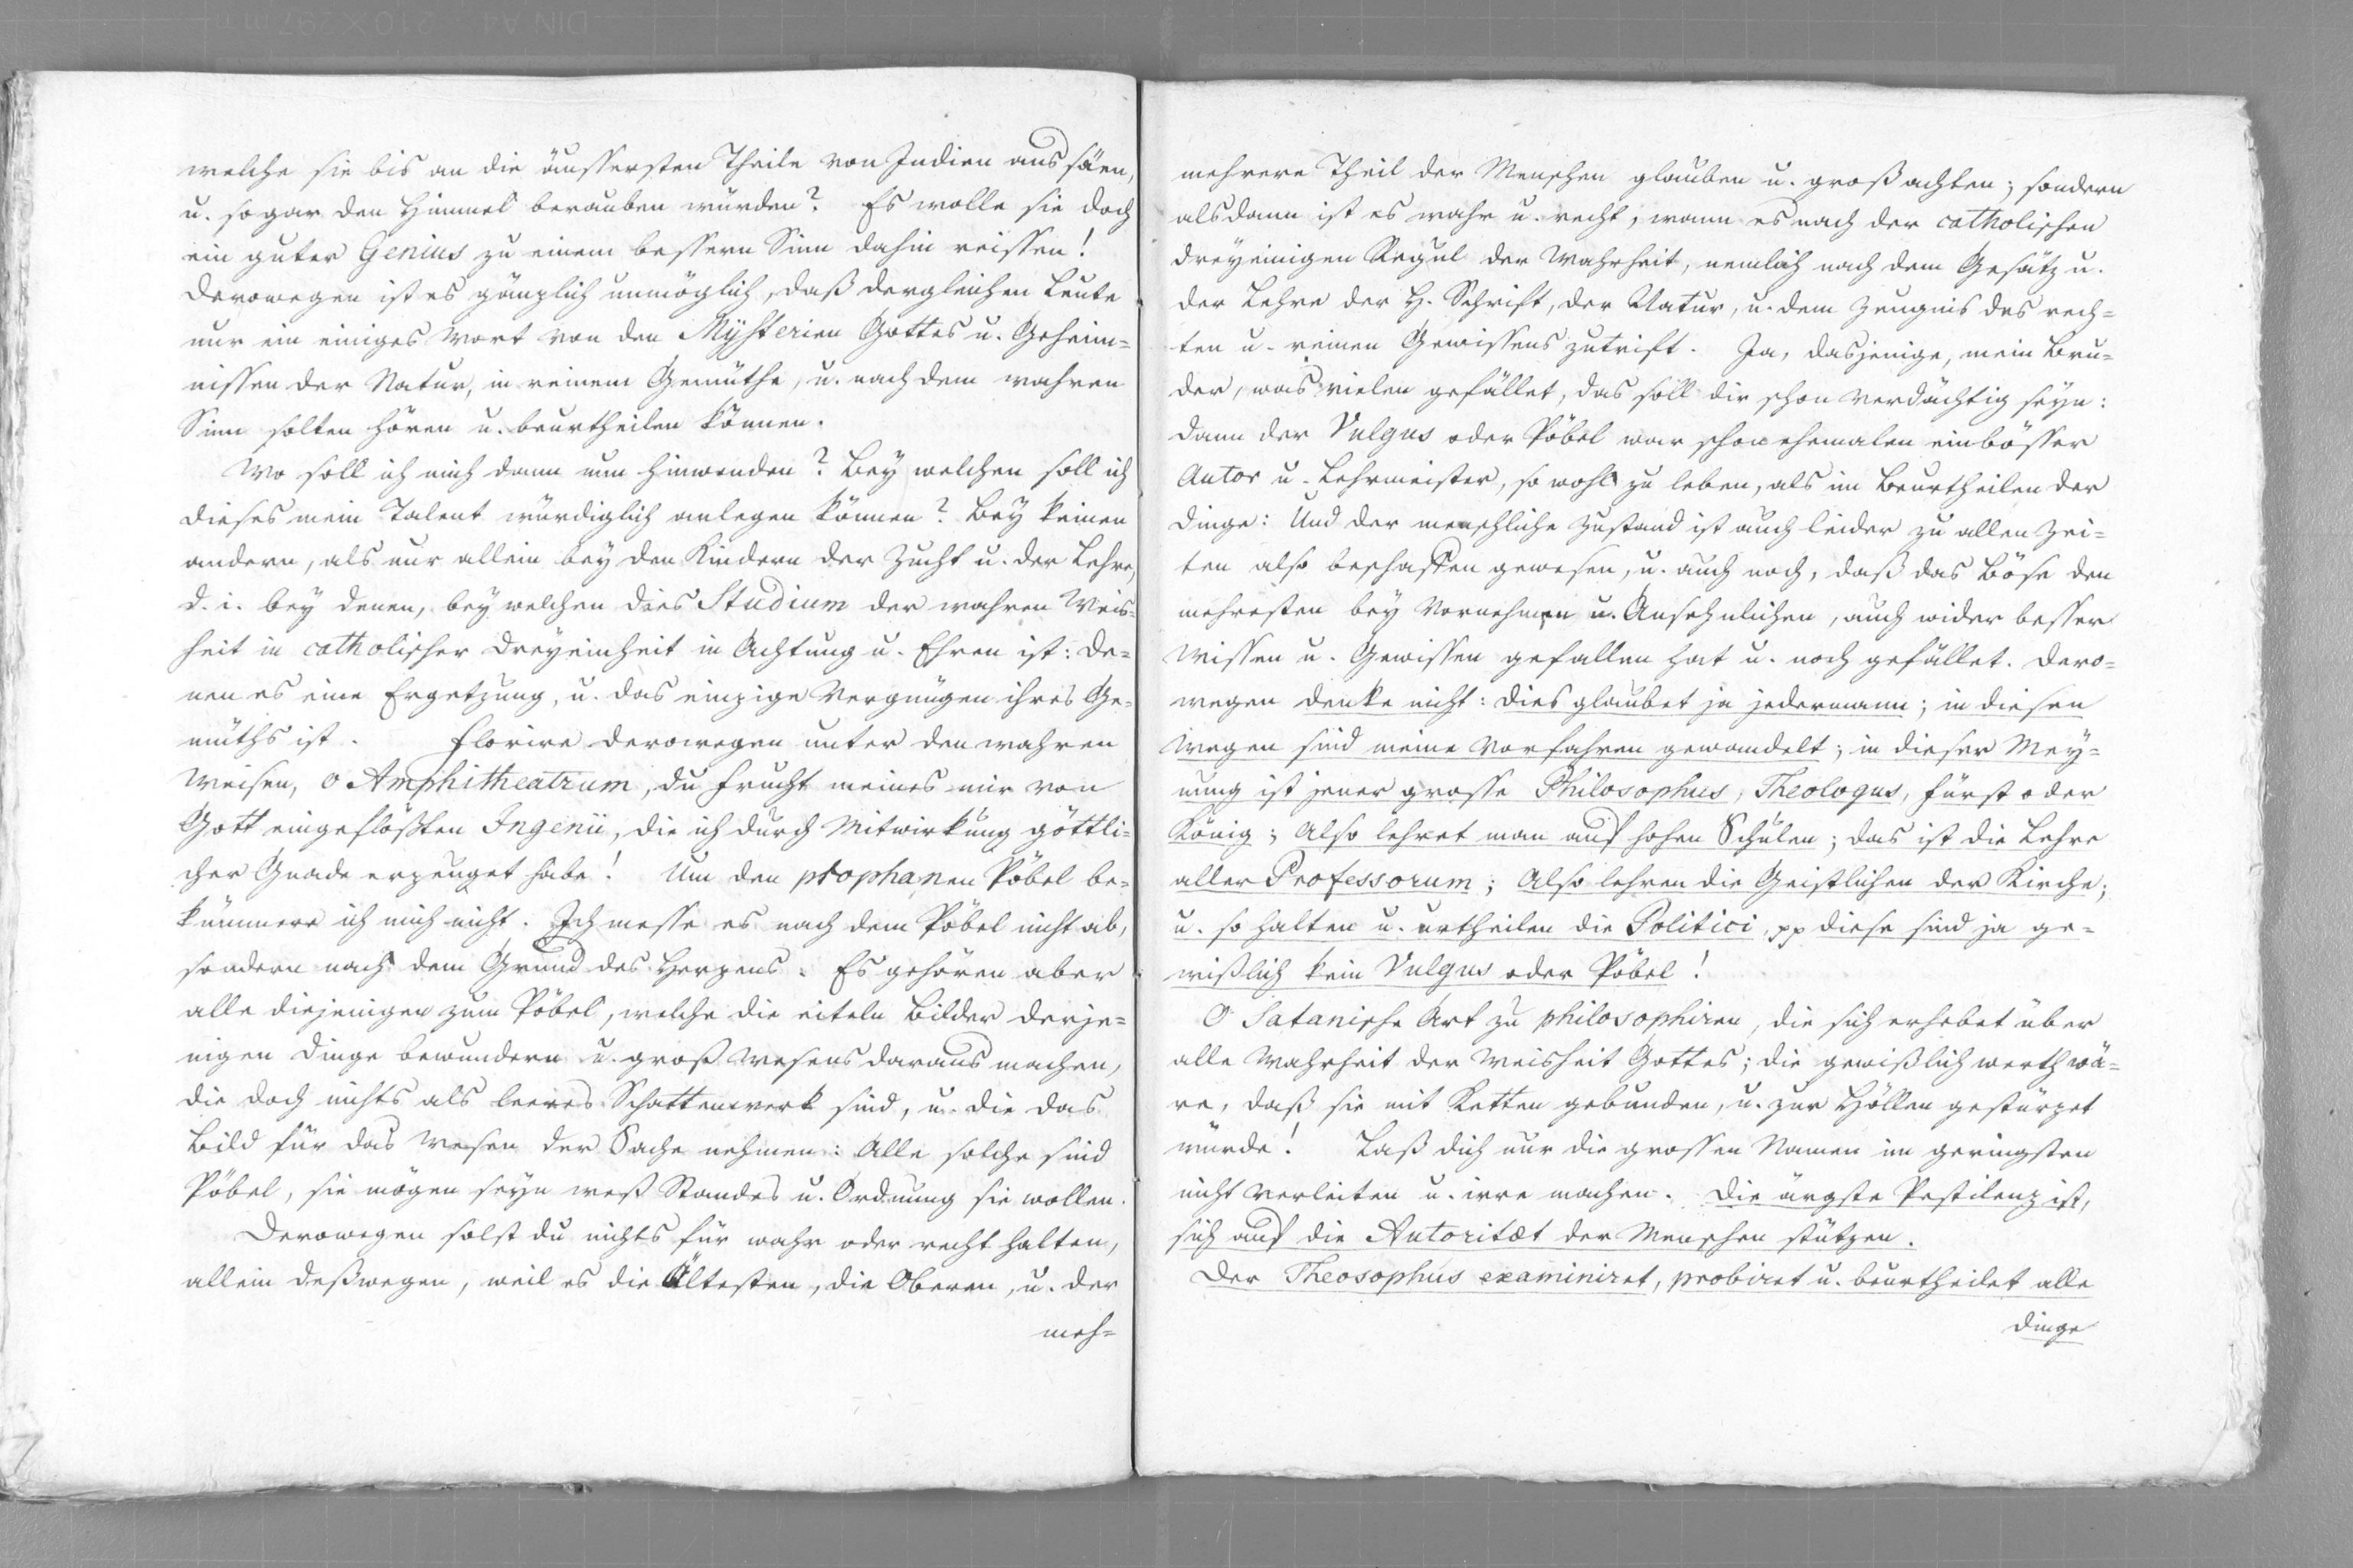 welche sie bis an die äussersten Theile von Indien aus säen,
u. sogar den Himmel berauben würden? Es wolle sie doch
ein guter Genius zu einem bessern Sinn dahin reissen!
Derowegen ist es gänzlich unmöglich, daß dergleichen Leute
nur ein einiges Wort von den Mÿsterien Gottes u. Geheim=
nissen der Natur, in reinem Gemüthe, u. nach dem wahren
Sinn solten hören u. beurtheilen können.
Wo soll ich mich dann nun hinwenden? Bey welchen soll ich
dieses mein Talent würdiglich anlegen können? Bey keinen
andern, als nur allein bey den Kindern der Zucht u. der Lehre,
d. i. bey denen, bey welchen dies Studium der wahren Weis=
heit in catholischer Dreyeinheit in Achtung u. Ehren ist: de=
nen es eine Ergetzung, u. das einzige Vergnügen ihres Ge=
müths ist. Florire derowegen unter den wahren
Weisen, o Amphitheatrum, du Frucht meines mir von
Gott eingeflößten Ingenii, die ich durch Mitwirkung göttli=
cher Gnade erzeuget habe! Um den prophanen Pöbel be=
kümmere ich mich nicht. Ich messe es nach dem Pöbel nicht ab,
sondern nach dem Grund des Herzens. Es gehören aber
alle diejenigen zum Pöbel, welche die eiteln Bilder derje=
nigen Dinge bewundern u. groß Wesens daraus machen,
die doch nichts als leeres Schattenwerk sind, u. die das
Bild für das Wesen der Sache nehmen: Alle solche sind
Pöbel, sie mögen seyn weß Standes u. Ordnung sie wollen.
Derowegen solst du nichts für wahr oder recht halten,
allein deßwegen, weil es die Ältesten, die Oberen, u. der
meh=
mehrere Theil der Menschen glauben u. groß achten; sondern
alsdann ist es wahr u. recht, wann es nach der catholischen
dreyeinigen Regul der Wahrheit, nemlich nach dem Gesätz u.
der Lehre der H. Schrift, der Natur, u. dem Zeugnis des rech=
ten u. reinen Gewissens zutrift. Ja, dasjenige, mein Bru=
der, was vielen gefället, das soll dir schon verdächtig seyn:
dann der Vulgus oder Pöbel war schon ehemalen ein bösser
Autor u. Lehrmeister, so wohl zu leben, als im Beurtheilen der
Dinge: Und der menschliche Zustand ist auch leider zu allen Zei=
ten also beschaffen gewesen, u. auch noch, daß das Böse den
mehresten bey Vornehmen u. Ansehnlichen, auch wider besser
Wissen u. Gewissen gefallen hat u. noch gefället. Dero=
wegen denke nicht: dies glaubet ja jedermann; in diesen
Wegen sind meine Vorfahren gewandelt; in dieser Mey=
nung ist jener grosse Philosophus, Theologus, Fürst oder
König; Also lehret man auf hohen Schulen; das ist die Lehre
aller Professorum; Also lehren die Geistlichen der Kirche;
u. so halten u. urtheilen die Politici, pp diese sind ja ge=
wißlich kein Vulgus oder Pöbel!
O Satanische Art zu philosophiren, die sich erhebet über
alle Wahrheit der Weisheit Gottes; die gewißlich werth wä=
re, daß sie mit Ketten gebunden, u. zur Höllen gestürzet
würde! Laß dich nur die grossen Namen im geringsten
nicht verleiten u. irre machen. Die ärgste Pestilenz ist,
sich auf die Autoritæt der Menschen stützen.
Der Theosophus examiniret, probiret u. beurtheilet alle
Dinge